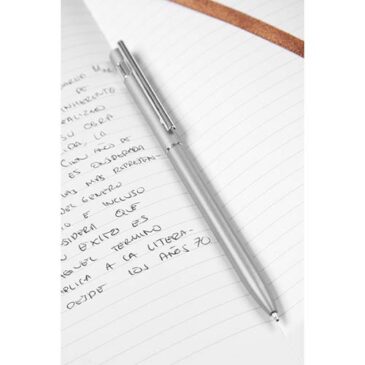 DE
INHERENTE
REALIZMO
SU OBRA
IDA, LA
CIEN AÑOS DE
ES CONSIDERADA
LAS MAS REPRESEN-
DEL GENERO
E INCLUSO
SIDERA QUE
EXITO ES
TERMINO
PLICA A LA LITERA-
DESDE LOS AÑOS 70.